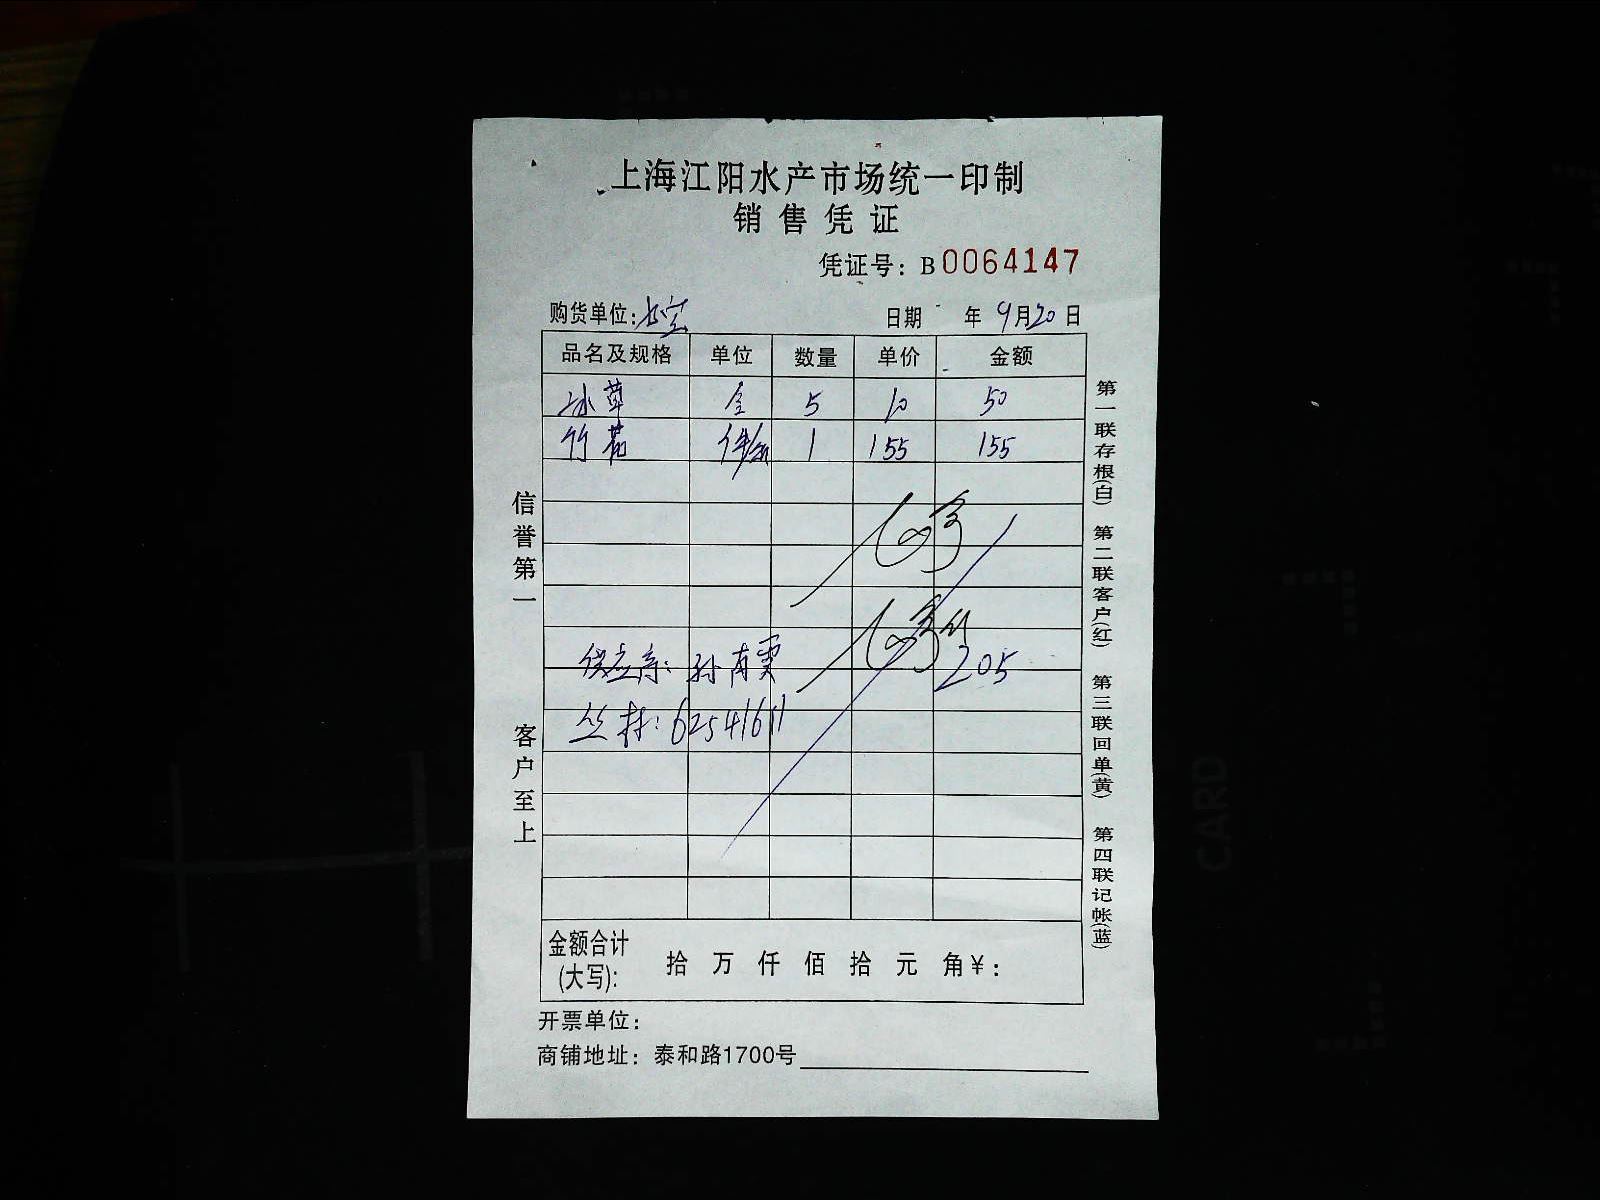 上海江阳水产市场统一印制
销售凭证
凭证号：B0064147
购货单位： 日期 年9月20日
品名及规格 单位 数量 单价 金额
冰草 盒 5 10 50
竹 1 155 155
205
供应商：孙
丛林：62541611
信誉第一 客户至上
第一联存根(白) 第二联客户(红) 第三联回单(黄) 第四联记帐(蓝)
金额合计(大写)： 拾 万 仟 佰 拾 元 角¥：
开票单位：
商铺地址：泰和路1700号